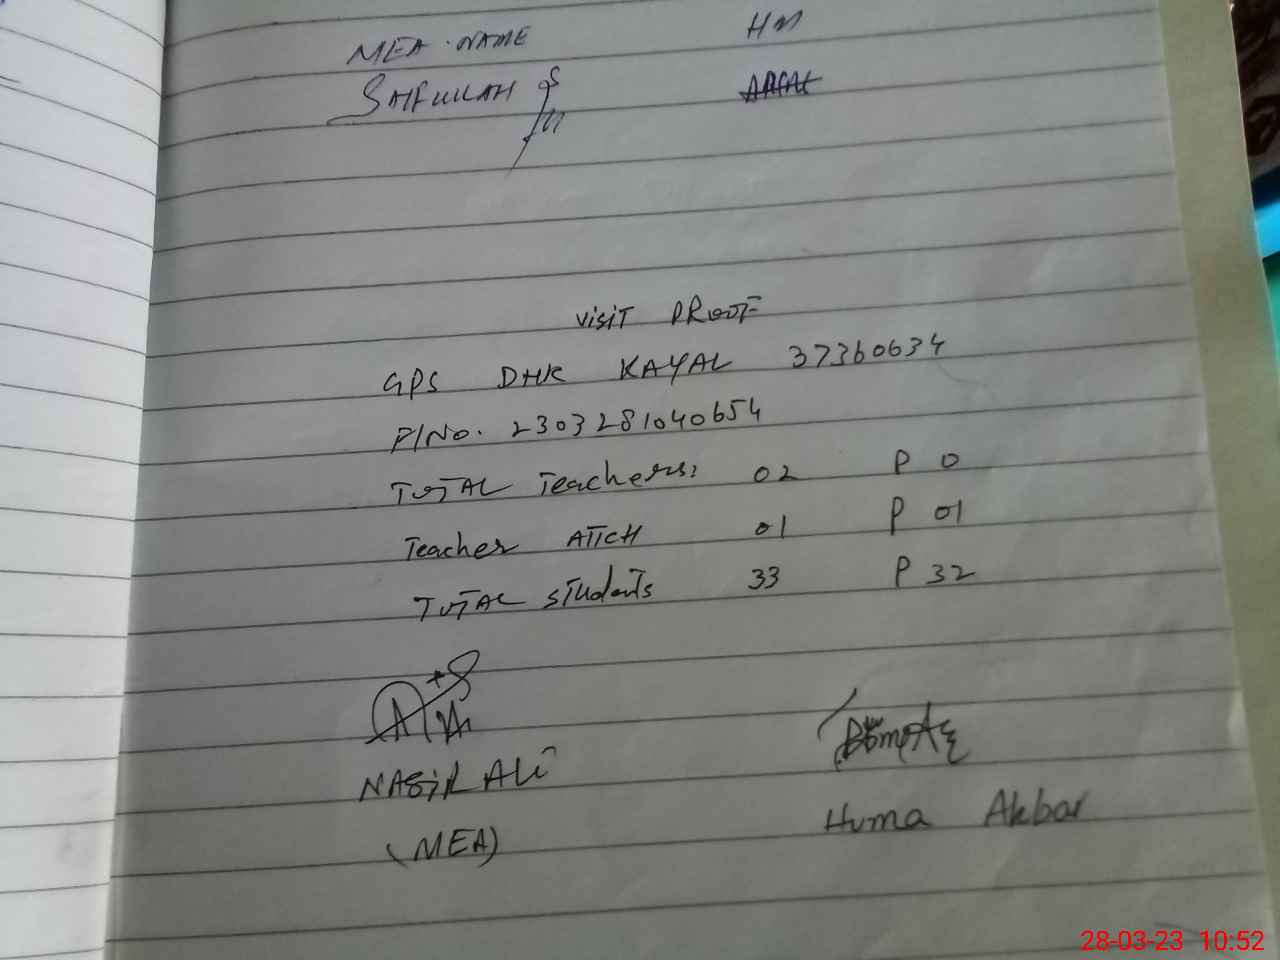 MEA . NAME HM
SAIFULLAH
VISIT PROOF
GPS DHK KAYAL 37360634
P/NO. 2303281040654
TOTAL Teachers: 02 P 0
Teacher ATTCH 01 P 01
TOTAL STUdents 33 P 32
NASIR ALi
(MEA)
Huma Akbar
28-03-23 10:52